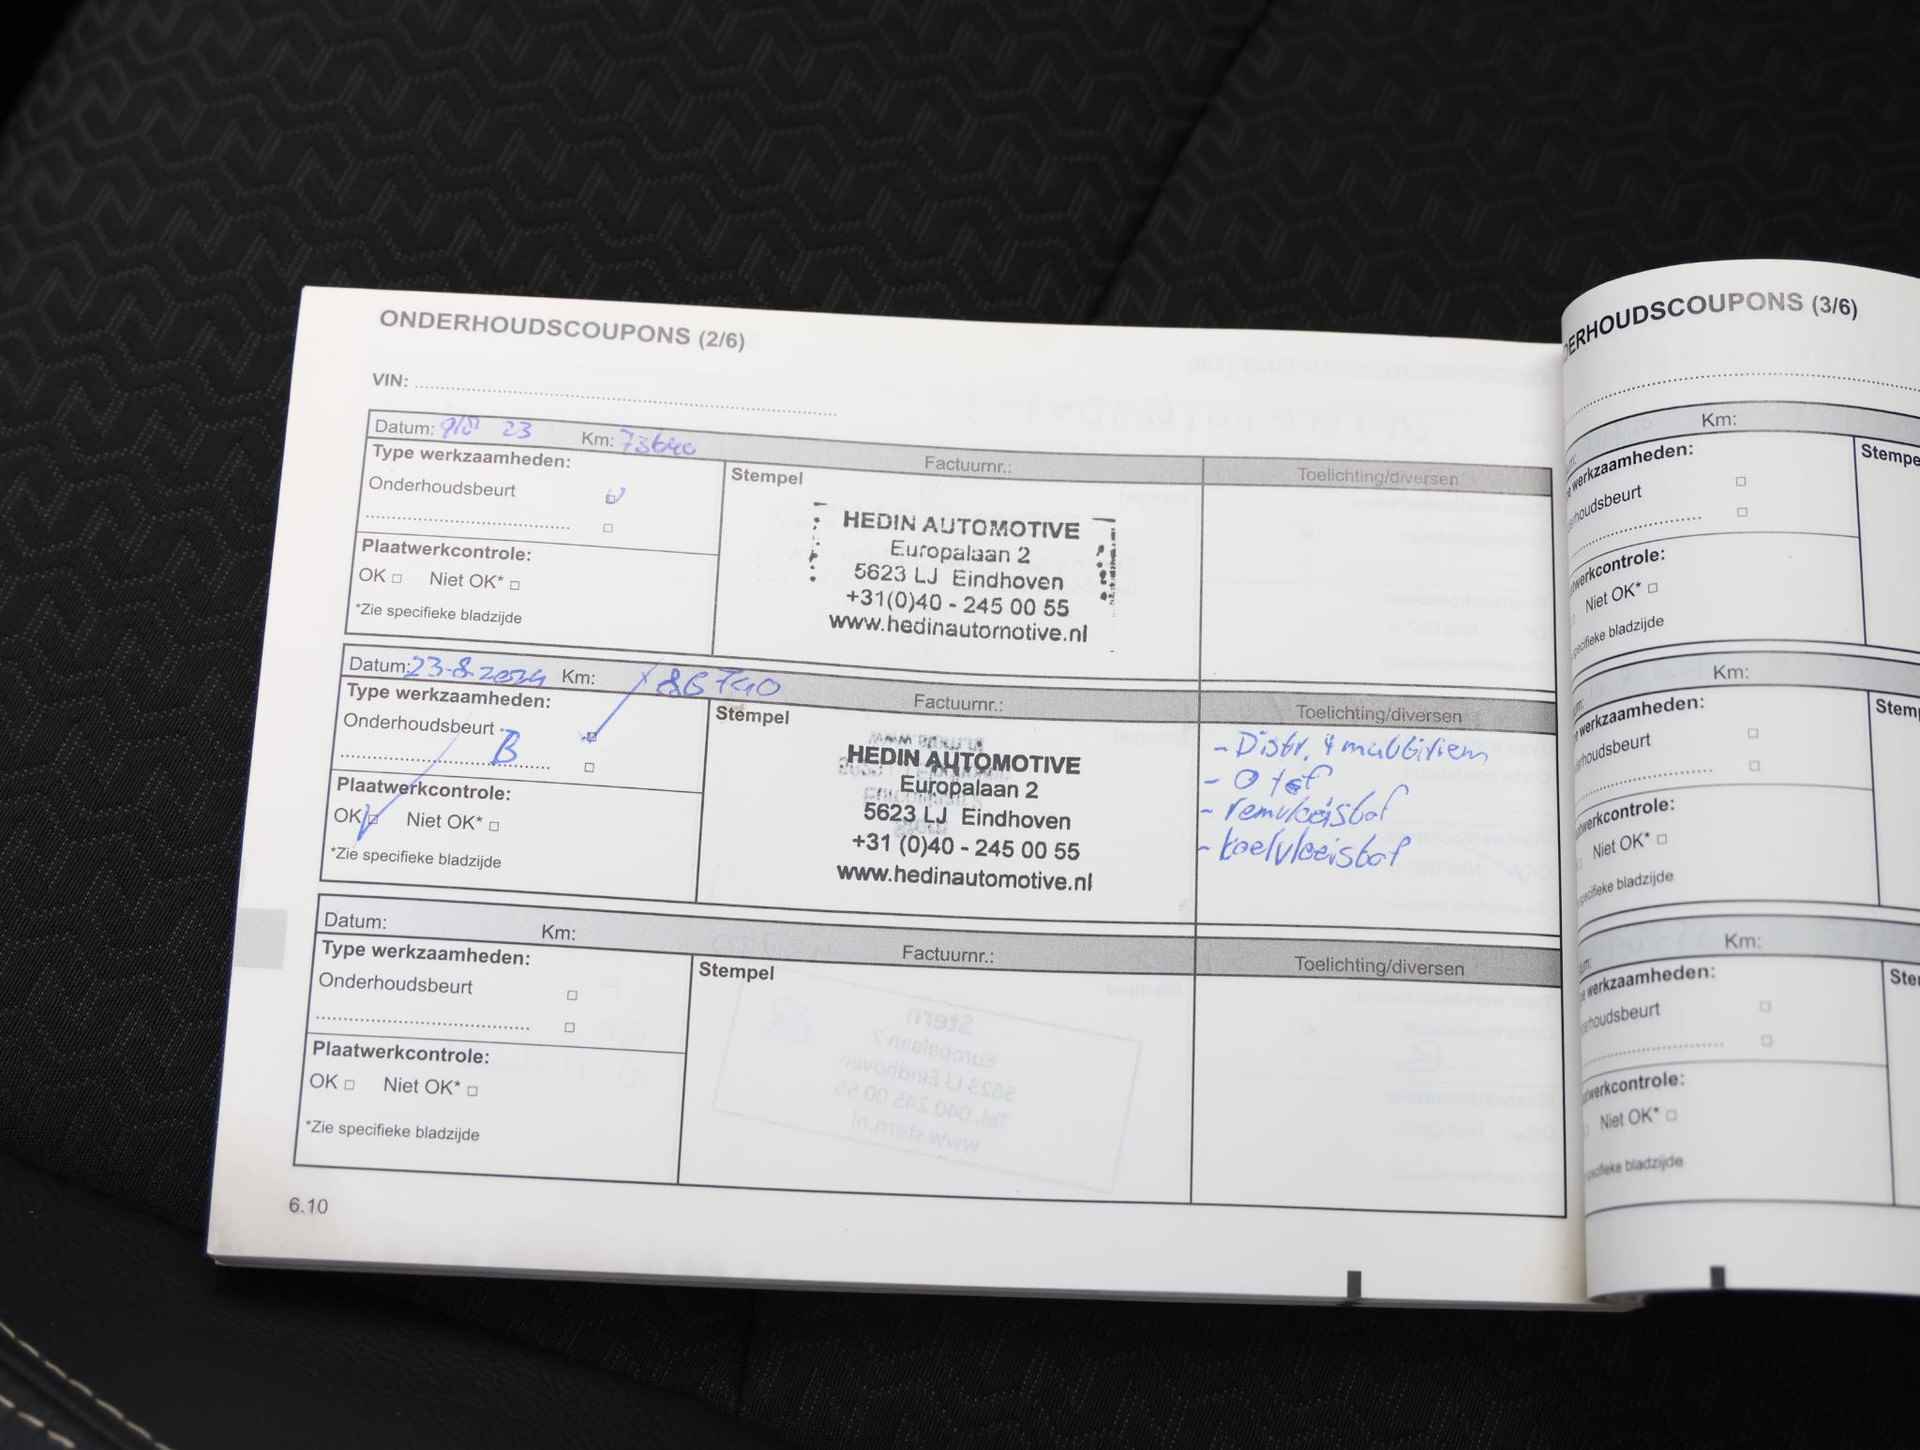 ONDERHOUDSCOUPONS (2/6)
VIN:
Datum: 23 Km: 73640
Type werkzaamheden:
Onderhoudsbeurt
Plaatwerkcontrole:
OK Niet OK*
*Zie specifieke bladzijde
Factuurnr.:
Stempel
HEDIN AUTOMOTIVE
Europalaan 2
5623 LJ Eindhoven
+31(0)40 - 245 00 55
www.hedinautomotive.nl
Toelichting/diversen
Datum: 23-8-2024 Km: 86740
Type werkzaamheden:
Onderhoudsbeurt
B
Plaatwerkcontrole:
OK Niet OK*
*Zie specifieke bladzijde
Factuurnr.:
Stempel
HEDIN AUTOMOTIVE
Europalaan 2
5623 LJ Eindhoven
+31 (0)40 - 245 00 55
www.hedinautomotive.nl
Toelichting/diversen
- Distr. & multiriem
- remvloeistof
- koelvloeistof
Datum: Km:
Type werkzaamheden:
Onderhoudsbeurt
Plaatwerkcontrole:
OK Niet OK*
*Zie specifieke bladzijde
Factuurnr.:
Stempel
Toelichting/diversen
6.10
DERHOUDSCOUPONS (3/6)
Km:
werkzaamheden:
houdsbeurt
Stempe
werkcontrole:
Niet OK*
specifieke bladzijde
Km:
werkzaamheden:
erhoudsbeurt
Stem
twerkcontrole:
Niet OK*
specifieke bladzijde
Km:
werkzaamheden:
erhoudsbeurt
Ste
twerkcontrole:
Niet OK*
specifieke bladzijde